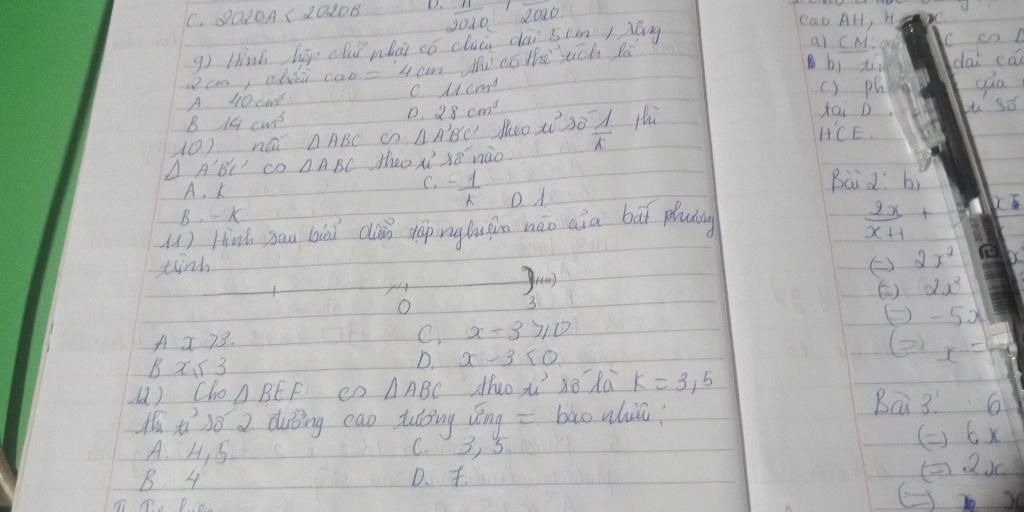 C. 2020A < 2020B
D.
2020
2020
9) Hình hộp chữ nhật có chiều dài 5cm, rộng
2cm, chiều cao = 4cm thì có thể tích là
A. 40cm³
C. 11cm³
B 14 cm³
D. 28 cm³
10) nếu ΔABC ∽ ΔA'B'C' theo tỉ số 1/k thì
ΔA'B'C' ∽ ΔABC theo tỉ số nào.
A. k
C. -1/k
B. -k
D 1
11) Hình sau biểu diễn tập nghiệm nào của bất phương
trình
0
3
A x > 3.
C. x - 3 ≥ 0
B x ≤ 3
D. x - 3 < 0
12) Cho ΔDEF ∽ ΔABC theo tỉ số là k = 3,5
thì tỉ số 2 đường cao tương ứng = bao nhiêu:
A. 4,5
C. 3,5
B. 4
D. 7
cao AH,
a) CM:
b)
dài các
c)
của
tại D
tỉ số
HCE.
Bài 2: b)
2x/x+1 +
(=) 2x²
(=) 2x²
(=) -5x
(=) x =
Bài 3: 6
(=) 6x
(=) 2x
(=) x